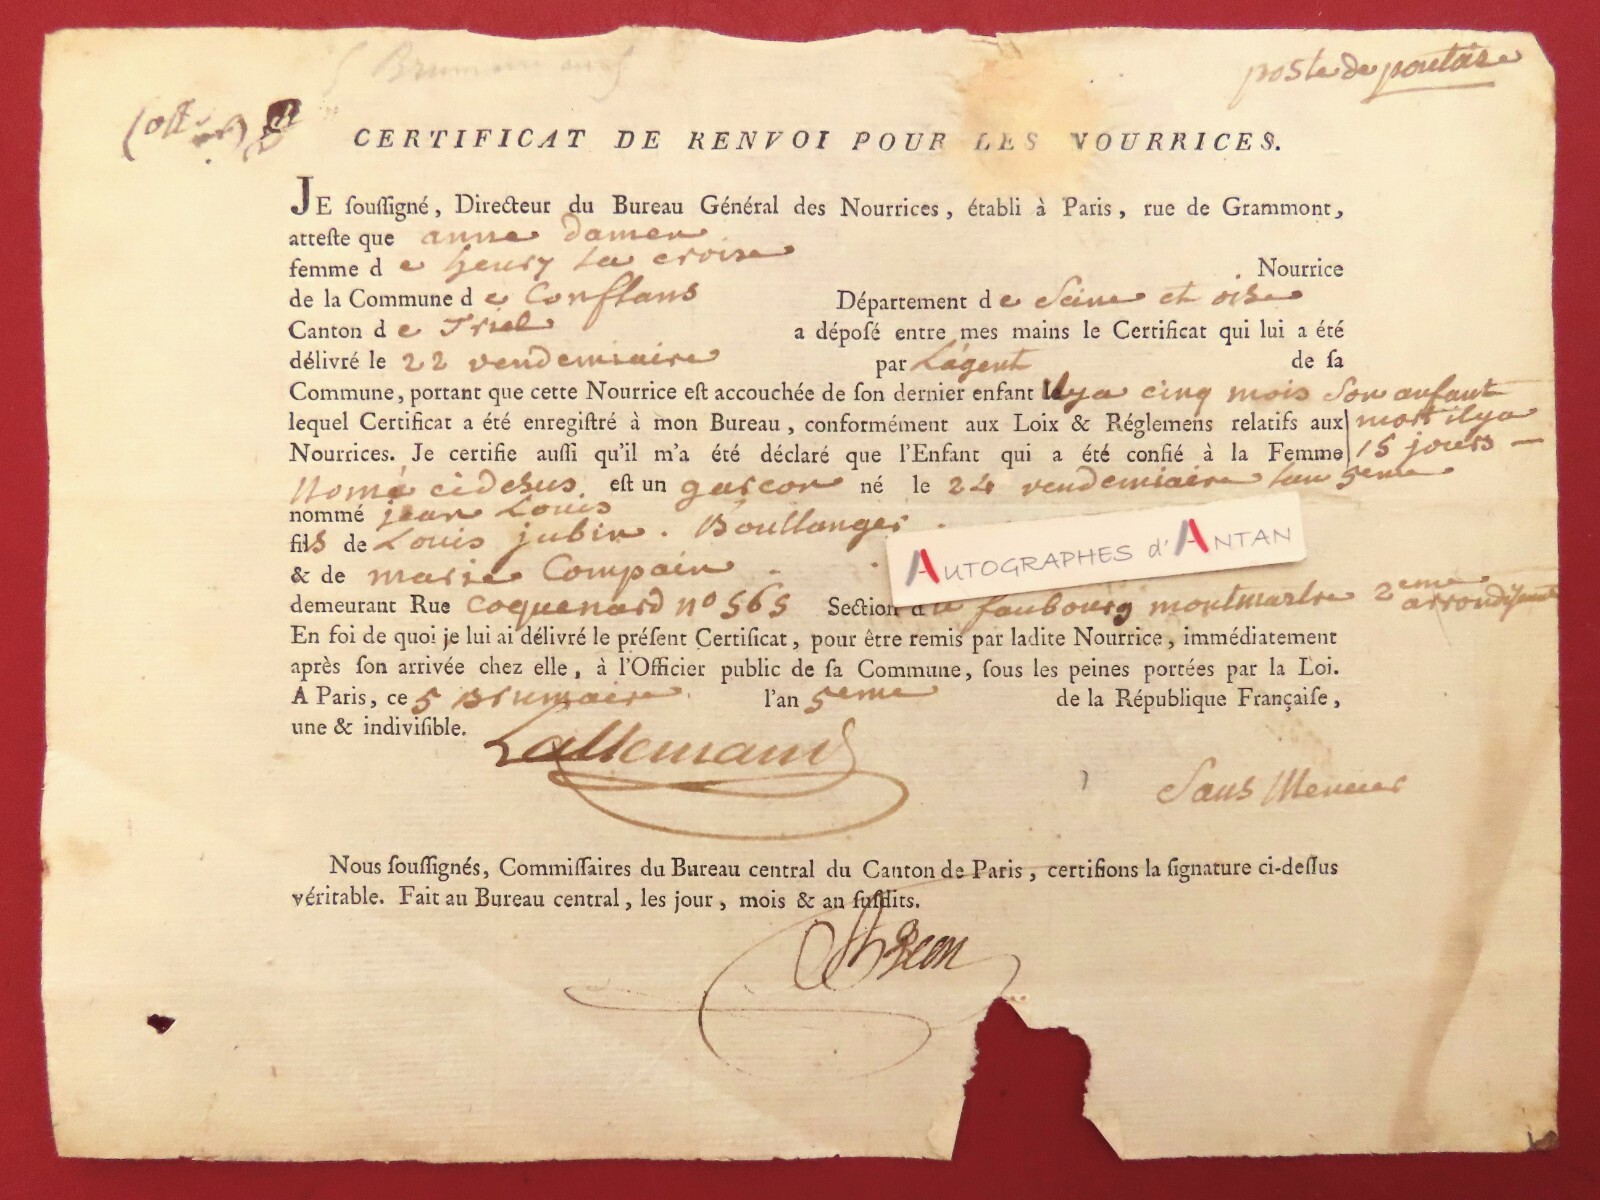 5 Brumaire an 5
poste de pontoise
CERTIFICAT DE RENVOI POUR LES NOURRICES.
JE soussigné, Directeur du Bureau Général des Nourrices, établi à Paris, rue de Grammont,
atteste que anne damen
femme de henry La croise Nourrice
de la Commune de Conflans Département de Seine et oise
Canton de Triel a déposé entre mes mains le Certificat qui lui a été
délivré le 22 vendemiaire par L'agent de sa
Commune, portant que cette Nourrice est accouchée de son dernier enfant il y a cinq mois Son anfant
lequel Certificat a été enregistré à mon Bureau, conformément aux Loix & Réglemens relatifs aux mort il ya
Nourrices. Je certifie aussi qu'il m'a été déclaré que l'Enfant qui a été confié à la Femme 15 jours —
Nomé cidesus est un garcon né le 24 vendemiaire lan 5eme
nommé jean Louis
fils de Louis jubin . Boullanger .
& de marie Compain .
demeurant Rue Coquenard no 565 Section du faubourg montmartre 2eme arrondisment
En foi de quoi je lui ai délivré le présent Certificat, pour être remis par ladite Nourrice, immédiatement
après son arrivée chez elle, à l'Officier public de sa Commune, sous les peines portées par la Loi.
A Paris, ce 5 Brumaire l'an 5eme de la République Française,
une & indivisible.
Lallemand
Sans Meneur
Nous soussignés, Commissaires du Bureau central du Canton de Paris, certifions la signature ci-dessus
véritable. Fait au Bureau central, les jour, mois & an susdits.
AUTOGRAPHES d'ANTAN